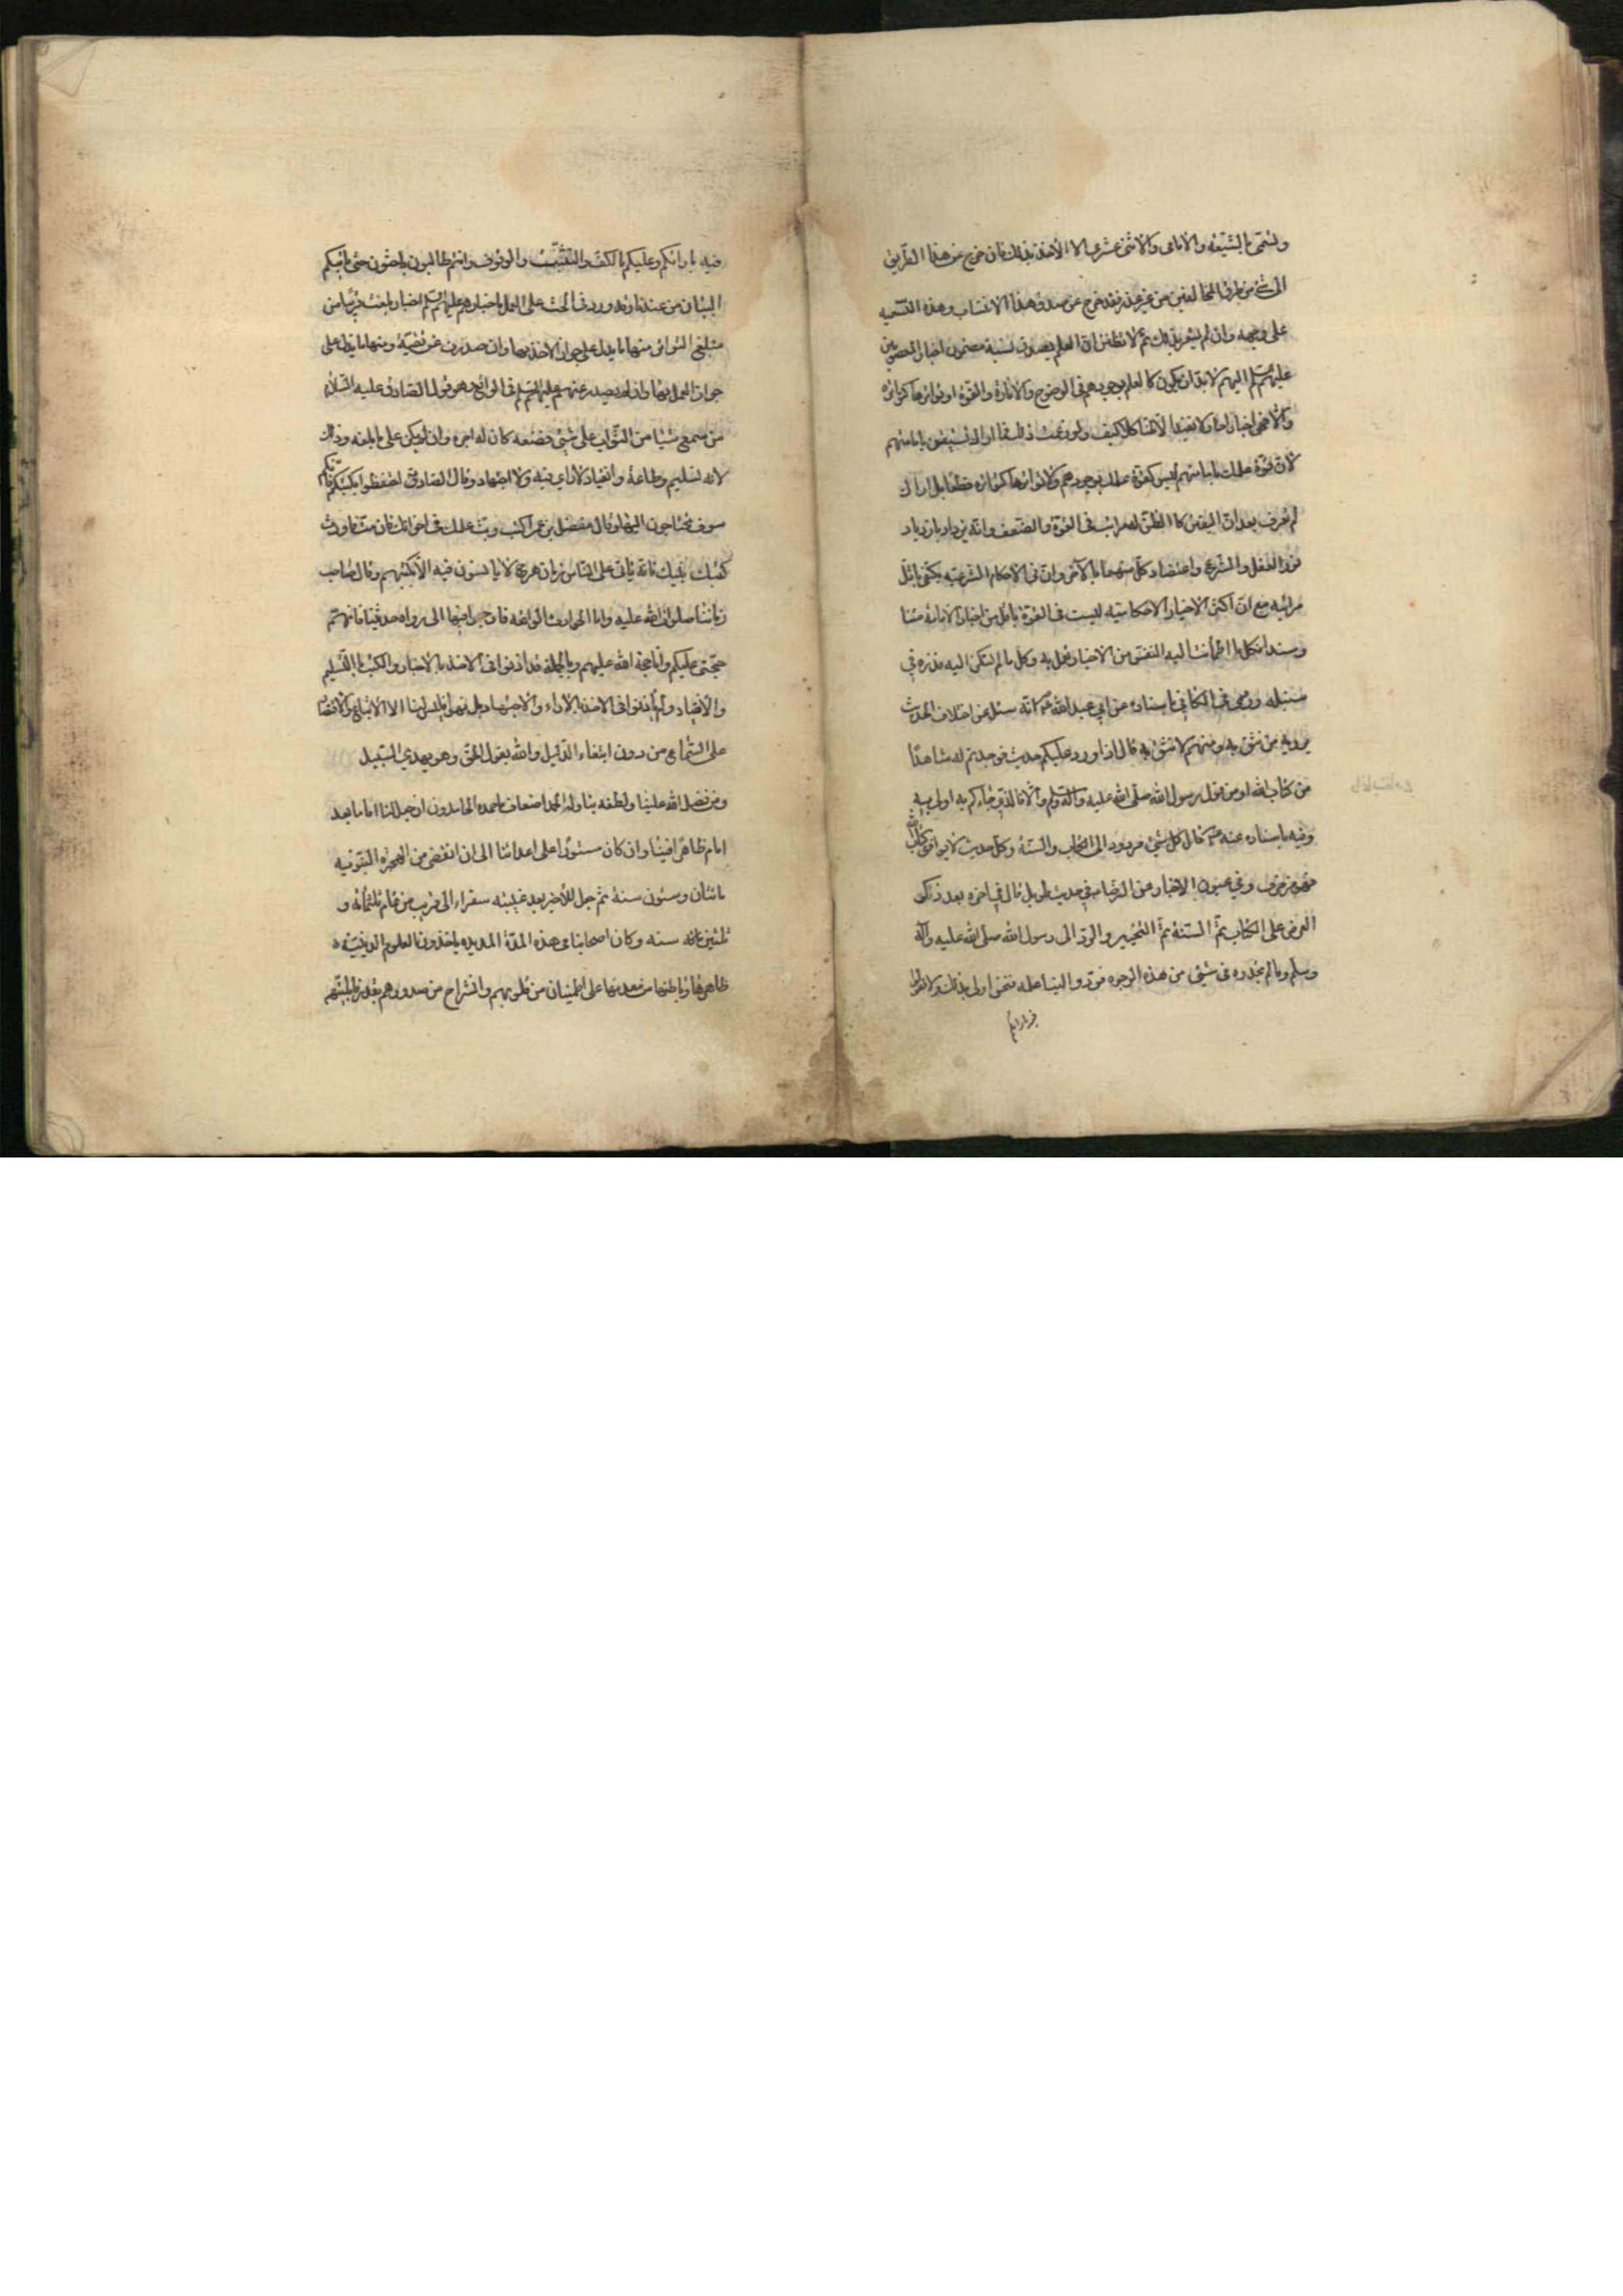 وتسمى بالشيعة والامامى والاثنى عشرى الا الأخذ بذلك فان خرج عن هذا الطريق
الى شئ من طرق المخالفين من غير عذر فقد خرج عن صدق هذا الانتساب وهذه التسميه
على وجهه وان لم يشعر بذلك ثم لا تظنن ان العلم بصدق نسبة مضمون اخبار المعصومين
عليهم السلم اليهم لابد ان يكون كالعلم بوجودهم فى الوضوح والانارة والقوة او تواترها كتواتره
والا فهى اخبار احاد لا تفيد الا ظنا كلا كيف ولو زعمت ذلك فما اراك تستيقن بامامتهم
لان قوة علمك بامامتهم ليس كقوة علمك بوجودهم ولا تواترها كتواتره قطعا بل اراك
لم تعرف بعد ان اليقين كالظن له مراتب فى القوة والضعف وانه يزداد بازدياد
نور العقل والشرع واعتضاد كل منهما بالآخر وان فى الاحكام الشرعيه يكتفى باقل
مراتبه مع ان اكثر الاخبار الاحكاميه ليست فى القوة باقل من اخبار الامامة متنا
وسندا فكل ما اطمأنت اليه النفس من الاخبار نعمل به وكل ما لم تسكن اليه نذره فى
سنبله وروى فى الكافى باسناده عن ابي عبد الله ع انه سئل عن اختلاف الحديث
يرويه من نثق به ومنهم لا نثق به قال اذا ورد عليكم حديث فوجدتم له شاهدًا
من كتاب الله او من قول رسول الله صلى الله عليه وآله وسلم والا فالذى جاءكم به اولى به
وفيه باسناده عنه ع قال كل شئ مردود الى الكتاب والسنة وكل حديث لا يوافق كتاب الله
فهو زخرف وفي عيون الاخبار عن الرضا ع في حديث طويل قال في اخره بعد ذكر
العرض على الكتاب ثم السنة ثم التخيير والرد الى رسول الله صلى الله عليه وآله
وسلم وما لم تجدوه فى شئ من هذه الوجوه فردّوا الينا علمه فنحن اولى بذلك ولا تقولوا
فيه بارائكم
فيه بارائكم وعليكم بالكف والتثبت والوقوف وانتم طالبون باحثون حتى ياتيكم
البيان من عندنا وقد ورد فى الحث على العمل باخبارهم عليهم السلم اخبار بلغت قريبًا من
مبلغ التواتر منها ما يدل على جواز الاخذ بها وان صدرت عن تقيّة ومنها ما يدل على
جواز العمل بها وان لم يصدر عنهم عليهم السلم فى الواقع وهو قول الصادق عليه السلام
من سمع شيئا من الثواب على شئ فصنعه كان له اجره وان لم يكن على ما بلغه وذلك
لانه تسليم وطاعة وانقياد لا راى فيه ولا اجتهاد وقال الصادق ع احتفظوا بكتبكم فانكم
سوف تحتاجون اليها وقال مفضل بن عمر اكتب وبث علمك فى اخوانك فان مت فاورث
كتبك بنيك فانه يأتى على الناس زمان هرج لا يانسون فيه الا بكتبهم وقال صاحب
زماننا صلوات الله عليه واما الحوادث الواقعه فارجعوا فيها الى رواة حديثنا فانهم
حجتى عليكم وانا حجة الله عليهم وبالجملة قد اذنوا فى الاخذ بالاخبار والكتب بالتسليم
والانقياد ولم ياذنوا فى الاخذ بالاراء والاجتهاد بل نهوا عنه فليس لنا الا الاتباع والاقتصار
على السماع من دون ابتغاء الدليل والله يقول الحق وهو يهدي السبيل
ومن فضل الله علينا ولطفه بنا وله الحمد اضعاف ما حمده الحامدون ان جعل لنا اماما بعد
امام ظاهرا فينا وان كان مستورًا على اعدائنا الى ان انقضى من الهجرة النبويه
مائتان وستون سنة ثم جعل للأخير بعد غيبته سفراء الى قريب من تمام ثلثمائه و
ثلثين سنه وكان اصحابنا فى هذه المدة المديده ياخذون العلوم الدينيّه
ظاهرها وباطنها من معدنها على اطمينان من قلوبهم وانشراح من صدورهم بقدر قابليتهم